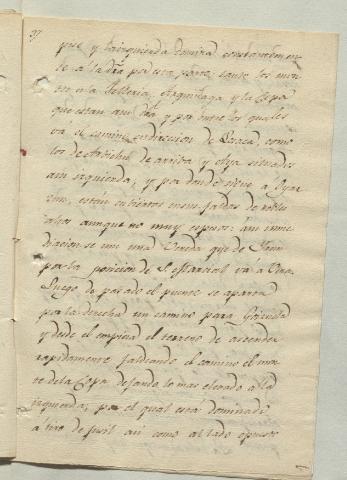 27
que y la izquierda domina constantemen-
te á la dra por esta parte; tanto los mon-
tes de la Telleria, Arquinaga y la Copa
que estan á su dra y por entre los quales
va el camino en direccion de Lesaca, como
los de de arriba y Olya situados
á su izquierda, y por donde sigue á Oyar-
zun, estan cubiertos en sus faldas de robles
altos aunque no muy espesos: á su inme-
diacion se une una Senda que de Irun
por la posicion de S. Marcial vá á Vera.
Luego de pasado el puente se aparta
por la derecha un camino para Goizueta
y desde el empieza el terreno de ascender
rapidamente faldeando el camino el mon-
te de la Copa dejando lo mas elevado a la
izquierda, por el qual está dominado
a tiro de fusil asi como al lado opuesto